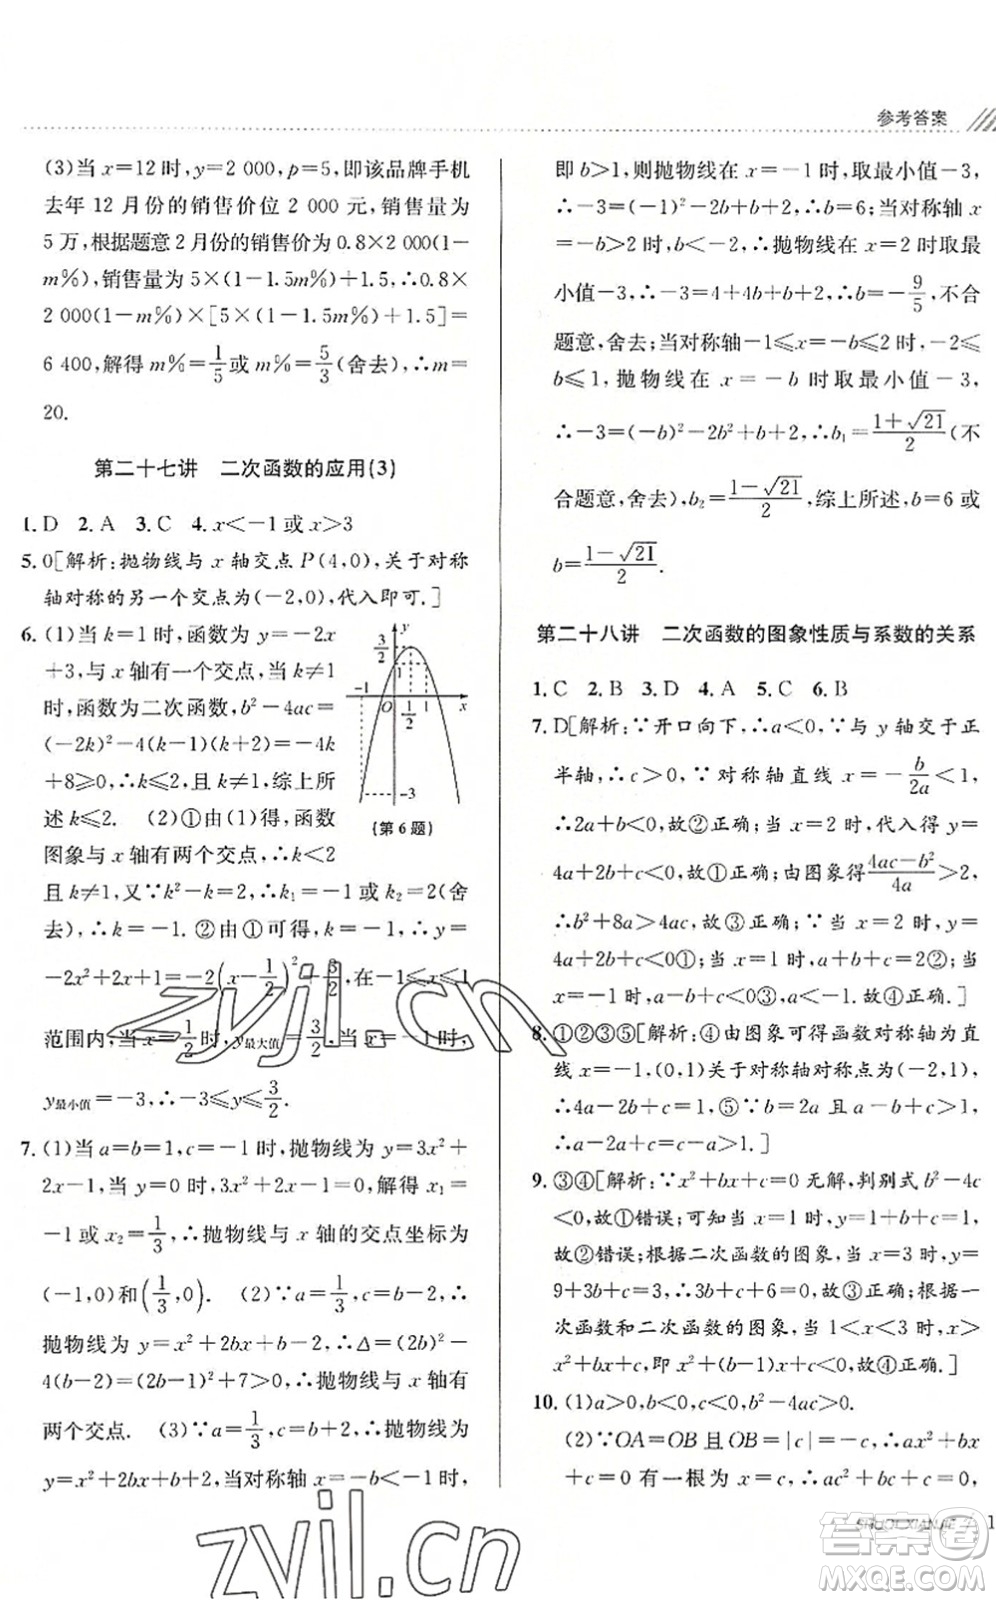 参考答案
(3)当 x=12 时, y=2 000, p=5, 即该品牌手机
去年 12 月份的销售价位 2 000 元, 销售量为
5 万, 根据题意 2 月份的销售价为 0.8×2 000(1-
m%), 销售量为 5×(1-1.5m%)+1.5, ∴0.8×
2 000(1-m%)×[5×(1-1.5m%)+1.5]=
6 400, 解得 m%=1/5 或 m%=5/3 (舍去), ∴m=
20.
第二十七讲 二次函数的应用(3)
1. D 2. A 3. C 4. x<-1 或 x>3
5. 0[解析:抛物线与 x 轴交点 P(4,0), 关于对称
轴对称的另一个交点为(-2,0), 代入即可.]
6. (1)当 k=1 时, 函数为 y=-2x
+3, 与 x 轴有一个交点; 当 k≠1
时, 函数为二次函数, b²-4ac=
(-2k)²-4(k-1)(k+2)=-4k
+8≥0, k≤2, 且 k≠1, 综上所
述 k≤2. (2)①由(1)得, 函数
图象与 x 轴有两个交点, ∴k<2
3/2 y -1 1 O 1/2 1 x -3
(第 6 题)
且 k≠1, 又∵k²-k=2, ∴k₁=-1 或 k₂=2(舍
去), ∴k=-1. ②由①可得 k=-1, ∴y=
-2x²+2x+1=-2(x-1/2)²+3/2, 在-1≤x≤1
范围内, 当 x=1/2 时, y最大值=3/2, 当 x=-1 时,
y最小值=-3, ∴-3≤y≤3/2.
7. (1)当 a=b=1, c=-1 时, 抛物线为 y=3x²+
2x-1, 当 y=0 时, 3x²+2x-1=0, 解得 x₁=
-1 或 x₂=1/3, ∴抛物线与 x 轴的交点坐标为
(-1,0)和(1/3,0). (2)∵a=1/3, c=b-2, ∴
抛物线为 y=x²+2bx+b-2, ∴Δ=(2b)²-
4(b-2)=(2b-1)²+7>0, ∴抛物线与 x 轴有
两个交点. (3)∵a=1/3, c=b+2, ∴抛物线为
y=x²+2bx+b+2, 当对称轴 x=-b<-1 时,
即 b>1, 则抛物线在 x=-1 时取最小值-3,
∴-3=(-1)²-2b+b+2, ∴b=6; 当对称轴 x
=-b>2 时, b<-2, ∴抛物线在 x=2 时取最
小值-3, ∴-3=4+4b+b+2, ∴b=-9/5, 不合
题意, 舍去; 当对称轴-1≤x=-b≤2 时, -2≤
b≤1, 抛物线在 x=-b 时取最小值-3,
∴-3=(-b)²-2b²+b+2, ∴b₁=(1+√21)/2 (不
合题意, 舍去), b₂=(1-√21)/2, 综上所述, b=6 或
b=(1-√21)/2.
第二十八讲 二次函数的图象性质与系数的关系
1. C 2. B 3. D 4. A 5. C 6. B
7. D[解析:∵开口向下, ∴a<0, ∵与 y 轴交于正
半轴, ∴c>0, ∵对称轴直线 x=-b/2a<1,
∴2a+b<0, 故②正确; 当 x=2 时, 代入得 y=
4a+2b+c<0, 故①正确; 由图象得(4ac-b²)/4a>2,
∴b²+8a>4ac, 故③正确; 当 x=2 时, y=
4a+2b+c<0①; 当 x=1 时, y=a+b+c=2②; 当
x=-1 时, y=a-b+c<0③, ∴a<-1, 故④正确.]
8. ①②③⑤[解析:④由图象可得函数对称轴为直
线 x=-1, (0,1)关于对称轴对称点为(-2,1),
∴4a-2b+c=1, ⑤∵b=2a 且 a<0, c=1,
∴c-a=1-a>1.]
9. ③④[解析:∵x²+bx+c=0 无解, 判别式 b²-4c
<0, 故①错误; 可知当 x=1 时, y=b+c+1=1,
故②错误; 根据二次函数的图象, 当 x=3 时, y=
9+3b+c=3, ∴3b+6+c=0, 故③正确; 根据一
次函数和二次函数的图象, 当 1<x<3 时, x>
x²+bx+c, 即 x²+(b-1)x+c<0, 故④正确.]
10. (1)a>0, b<0, c<0, b²-4ac>0.
(2)∵OA=OB 且 OB=|c|=-c, ∴ax²+bx
+c=0 有一根为 x=c, ∴ac²+bc+c=0,
zyjl.cn
zyjl.cn
答案圈
MXQE.COM
1